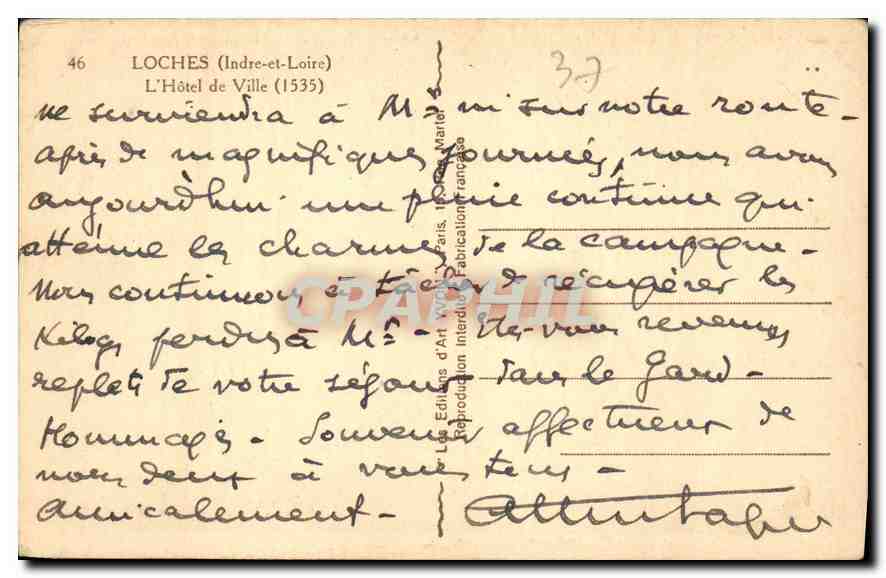 46 LOCHES (Indre-et-Loire)
L'Hôtel de Ville (1535)
37
ne surviendra à M ni sur notre route -
après de magnifiques journées, nous avons
aujourd'hui une pluie continue qui
atténue les charmes de la campagne -
Nous continuons à tâcher de récupérer les
Kilogs perdus à M - Etes-vous revenus
replets de votre séjour dans le Gard -
Hommages - Souvenirs affectueux de
nous deux à vous tous -
Amicalement -
Les Editions d'Art YVON, Paris, Martel
Reproduction Interdite Fabrication Française
CPAPHIL